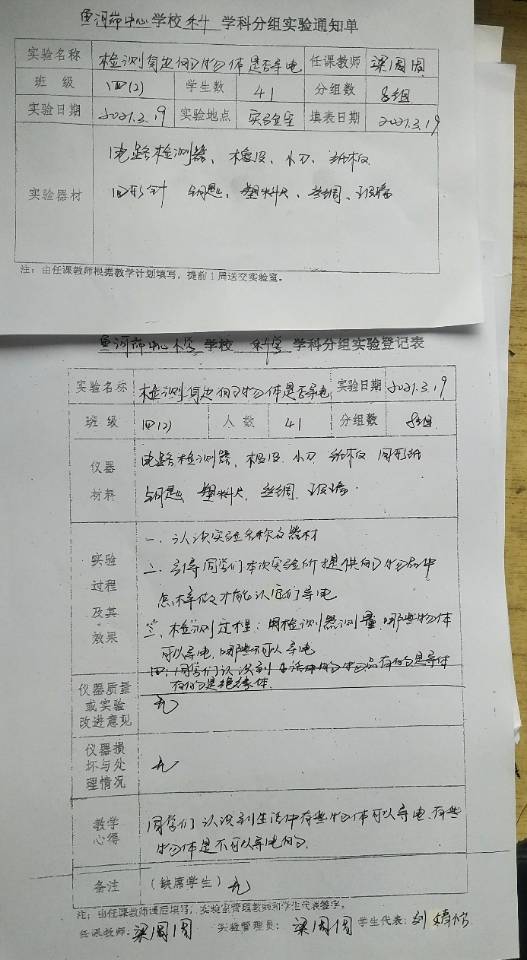 鱼河茆中心学校 科 学科分组实验通知单
实验名称 检测身边的物体是否导电 任课教师 梁周周
班 级 四(2) 学生数 41 分组数 8组
实验日期 2021.3.19 实验地点 实验室 填表日期 2021.3.19
实验器材 电路检测器、橡皮、小刀、纸板
回形针 钥匙、塑料尺、丝绸、玻璃
注：由任课教师根据教学计划填写，提前1周送交实验室。
鱼河茆中心小学 学校 科学 学科分组实验登记表
实验名称 检测身边的物体是否导电 实验日期 2021.3.19
班 级 四(2) 人 数 41 分组数 8组
仪器 电路检测器、橡皮、小刀、纸板
材料 钥匙 塑料尺、丝绸、玻璃
实验 一、认识实验名称及器材
过程 二、引导同学们本次实验所提供的物体
及其 怎样做才能认识它们导电
效果 三、检测过程：用检测器测量，哪些物体
可以导电，哪些不可以导电
四：同学们认识到生活中的物品有的是导体
有的是绝缘体.
仪器质量
或实验 无
改进意见
仪器损
坏与处 无
理情况
教学 同学们认识到生活中有些物体可以导电，有些
心得 物体是不可以导电的.
备注 (缺席学生) 无
注：由任课教师课后填写，实验室管理教师和学生代表签字。
任课教师：梁周周 实验管理员：梁周周 学生代表：刘